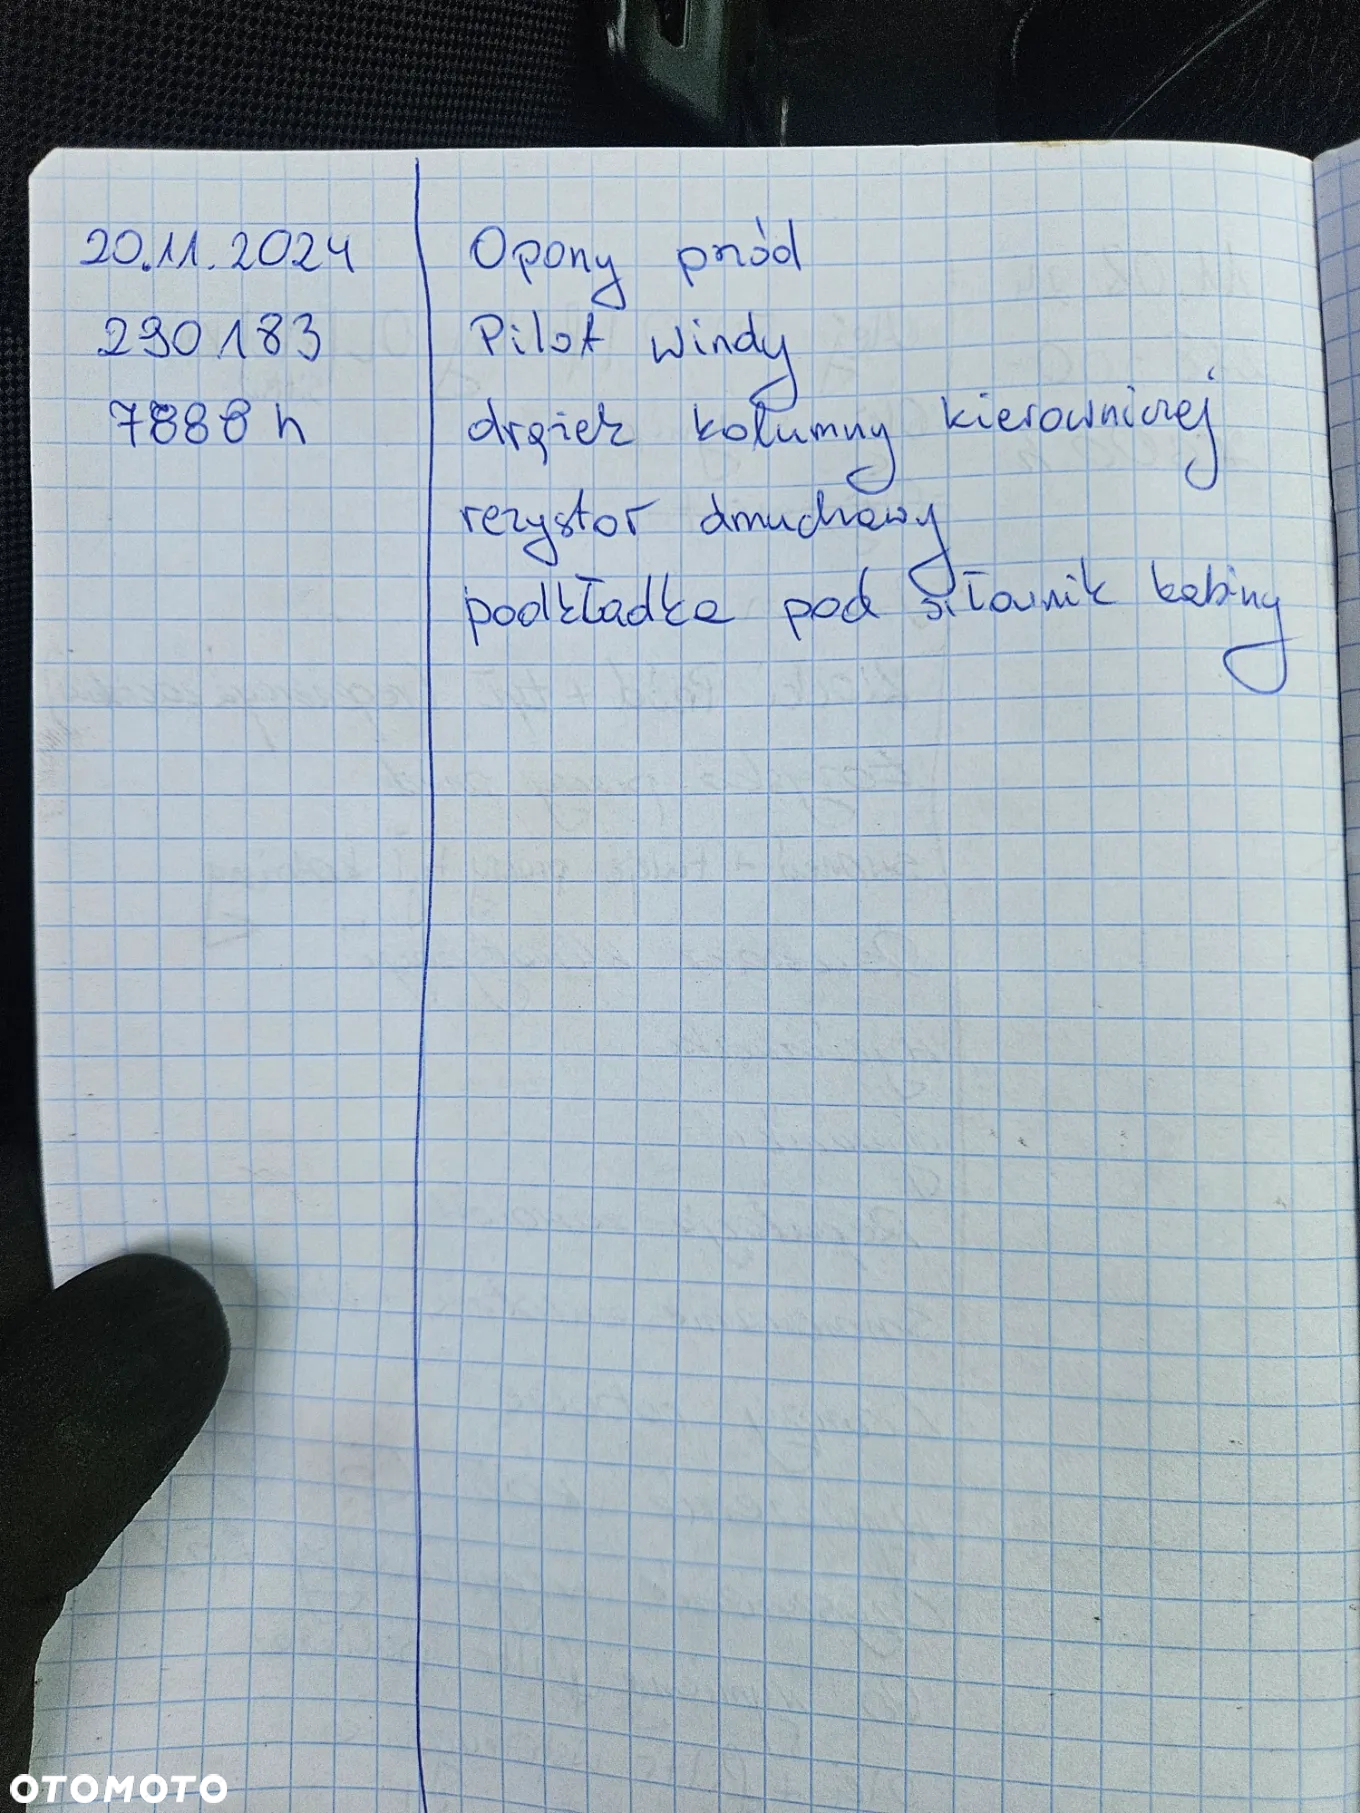 20.11.2024 Opony przód
290183 Pilot windy
7888 h drążek kolumny kierowniczej
rezystor dmuchawy
podkładka pod siłownik kabiny
OTOMOTO